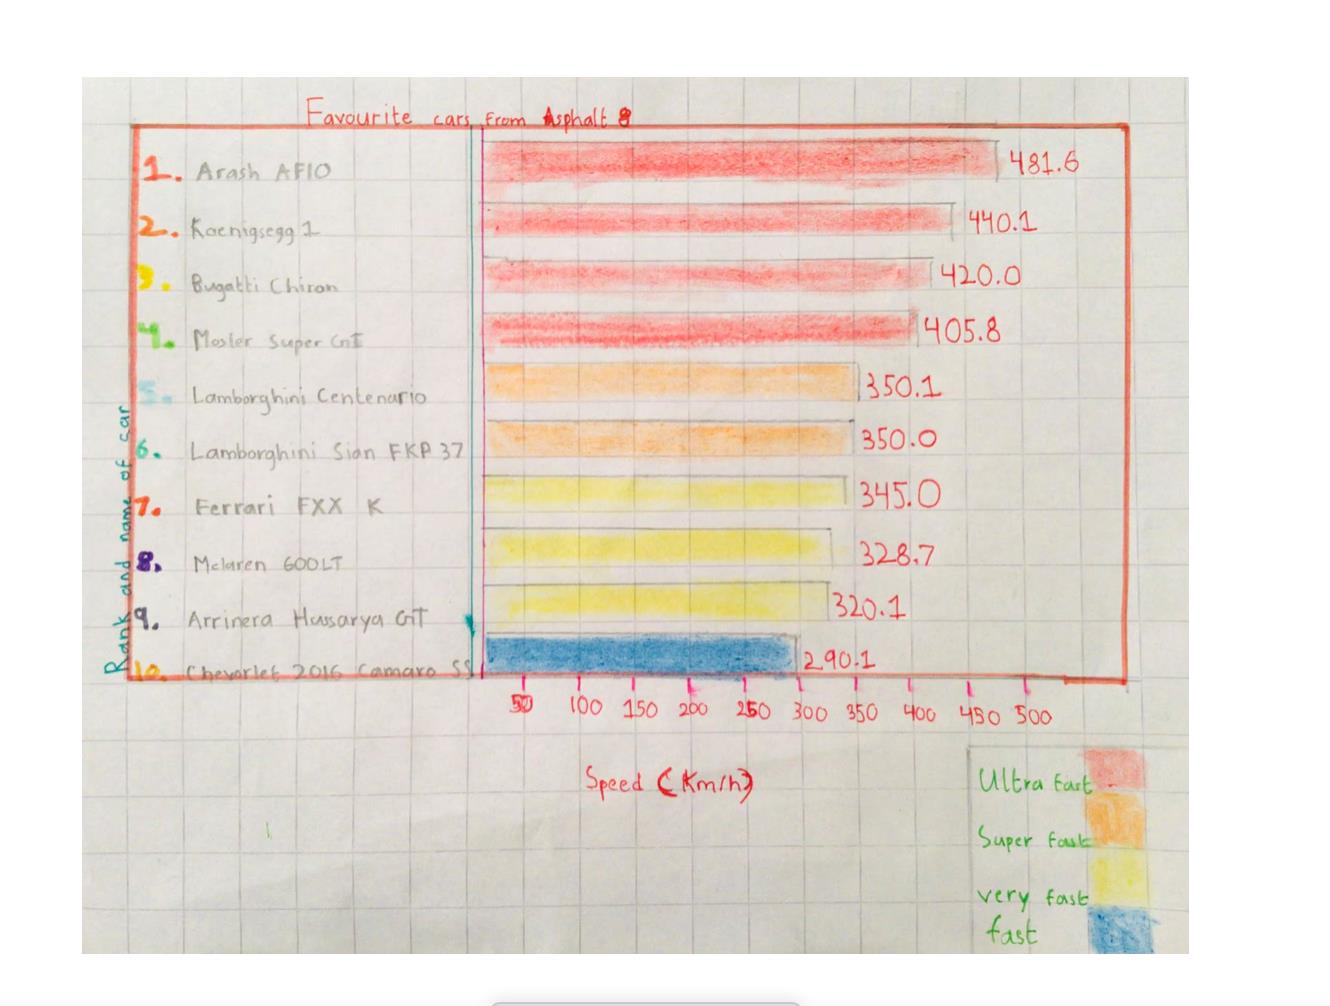 Favourite cars from Asphalt 8
1. Arash AF10 481.6
2. Koenigsegg 1 440.1
3. Bugatti Chiron 420.0
4. Mosler Super GT 405.8
5. Lamborghini Centenario 350.1
6. Lamborghini Sian FKP 37 350.0
7. Ferrari FXX K 345.0
8. Mclaren 600LT 328.7
9. Arrinera Hussarya GT 320.1
10. Chevorlet 2016 Camaro SS 290.1
Rank and name of car
50 100 150 200 250 300 350 400 450 500
Speed (Km/h)
Ultra fast
Super fast
very fast
fast